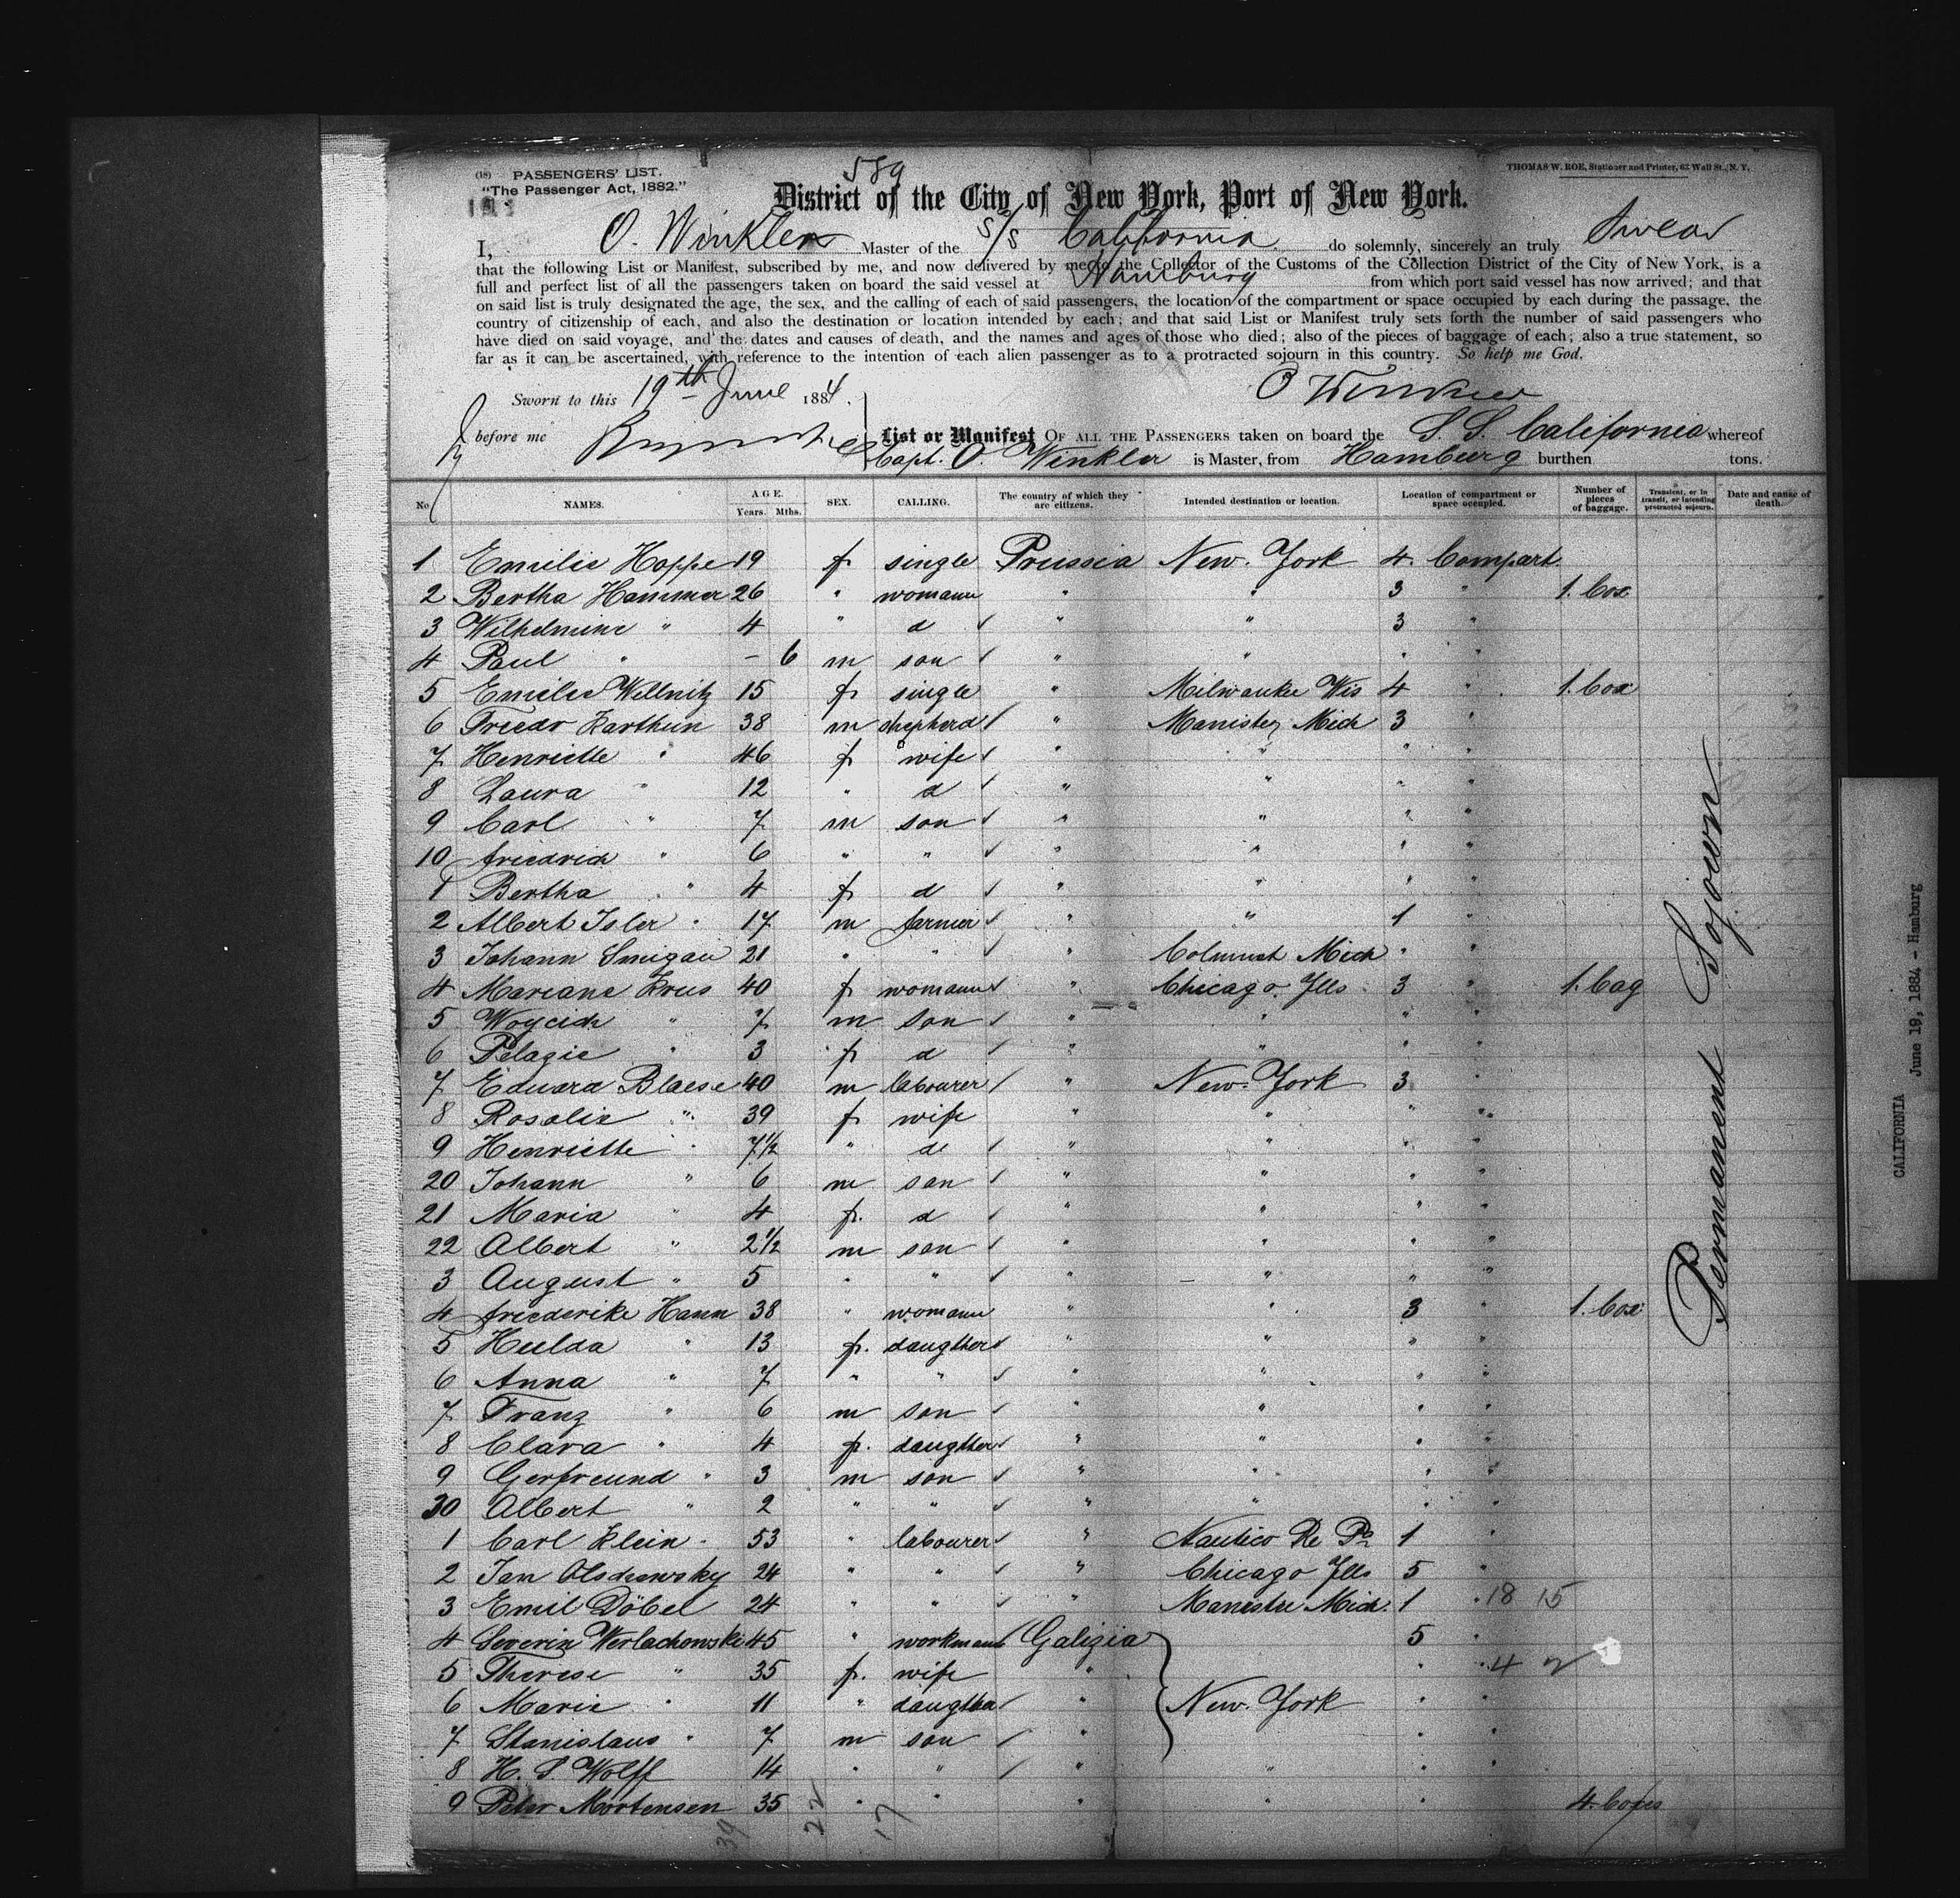 589
(18) PASSENGERS' LIST.
"The Passenger Act, 1882."
THOMAS W. ROE, Stationer and Printer, 63 Wall St., N. Y.
District of the City of New York, Port of New York.
I, O. Winkler Master of the S/S California do solemnly, sincerely an truly Swear
that the following List or Manifest, subscribed by me, and now delivered by me to the Collector of the Customs of the Collection District of the City of New York, is a
full and perfect list of all the passengers taken on board the said vessel at Hamburg from which port said vessel has now arrived; and that
on said list is truly designated the age, the sex, and the calling of each of said passengers, the location of the compartment or space occupied by each during the passage, the
country of citizenship of each, and also the destination or location intended by each; and that said List or Manifest truly sets forth the number of said passengers who
have died on said voyage, and the dates and causes of death, and the names and ages of those who died; also of the pieces of baggage of each; also a true statement, so
far as it can be ascertained, with reference to the intention of each alien passenger as to a protracted sojourn in this country. So help me God.
Sworn to this 19th June 1884. O Winkler
before me
List or Manifest OF ALL THE PASSENGERS taken on board the S. S. California whereof
Capt. O. Winkler is Master, from Hamburg burthen tons.
No NAMES. AGE. Years. Mths. SEX. CALLING. The country of which they are citizens. Intended destination or location. Location of compartment or space occupied. Number of pieces of baggage. Transient, or in transit, or intending protracted sojourn. Date and cause of death.
1 Emilie Hoppe 19 f single Prussia New. York 4. Compart.
2 Bertha Hammer 26 " womann " " 3 " 1. box
3 Wilhelmine " 4 " d " " 3 "
4 Paul " – 6 m son " " " "
5 Emilie Wellnitz 15 f single " Milwaukee Wis 4 " 1. box
6 Friedr Karthun 38 m shepherd " Manistey Mich 3 "
7 Henriette " 46 f wife " " " "
8 Laura " 12 " d " " " "
9 Carl " 7 m son " " " "
10 Friedrich " 6 " " " " " "
1 Bertha " 4 f d " " " "
2 Albert Isler 17 m farmer " " 1 "
3 Johann Smigau 21 " " " Mich "
4 Mariane Krus 40 f womann " Chicago Ills 3 " 1. bag
5 Woycich " 7 m son " " " "
6 Pelagie " 3 f d " " " "
7 Eduard Blaese 40 m labourer " New. York 3 "
8 Rosalie " 39 f wife " " " "
9 Henriette " 7½ " d " " " "
20 Johann " 6 m son " " " "
21 Maria " 4 f. d " " " "
22 Albert " 2½ m son " " " "
3 August " 5 " " " " " "
4 Friederike Hann 38 " womann " " 3 " 1. box
5 Hulda " 13 f. daugther " " " "
6 Anna " 7 " " " " " "
7 Franz " 6 m son " " " "
8 Clara " 4 f. daugther " " " "
9 Gerfreund " 3 m son " " " "
30 Albert " 2 " " " " " "
1 Carl Klein 53 " labourer " Nautico Re Pa 1 "
2 Jan Olschewsky 24 " " " Chicago Ills 5 "
3 Emil Döbel 24 " " " Manestee Mich. 1 " 18 15
4 Severin Werlachowski 45 " workmann Galizia 5 "
5 Therese " 35 f. wife " " " 4 2
6 Marie " 11 " daugther " New. York " "
7 Stanislaus " 7 m son " " "
8 H. S. Wolff 14 " " " " " "
9 Peter Mortensen 35 " " " " " 4. boxes
39 22 17
Permanent Sojourn
CALIFORNIA
June 19, 1884 - Hamburg